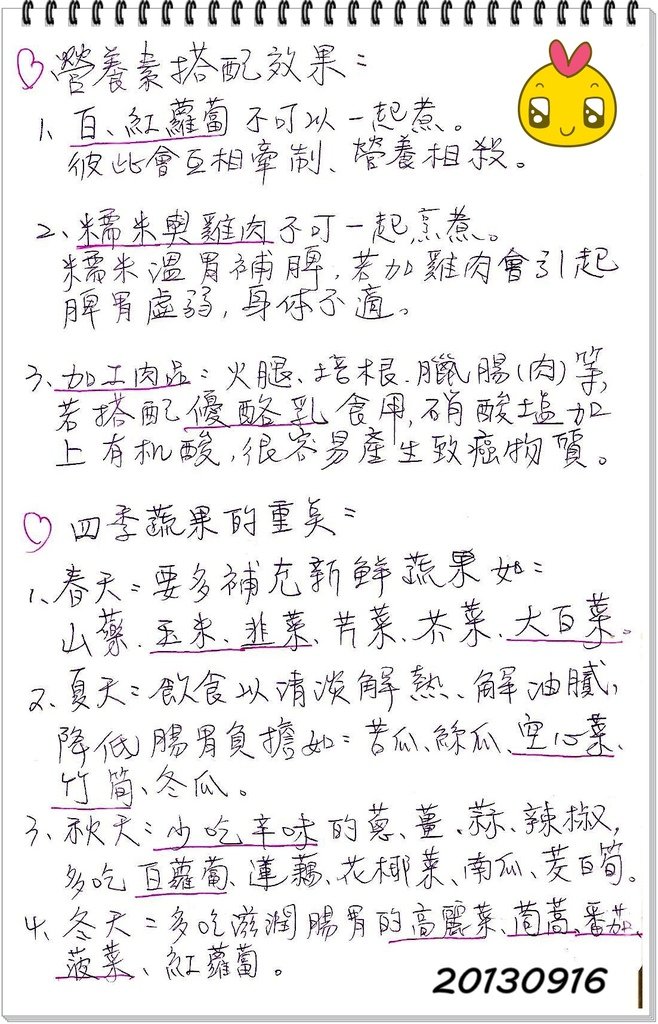 營養素搭配效果：
1、白、紅蘿蔔不可以一起煮。
彼此會互相牽制、營養相殺。
2、糯米與雞肉不可一起烹煮。
糯米溫胃補脾，若加雞肉會引起
脾胃虛弱，身体不適。
3、加工肉品：火腿、培根、臘腸(肉)等，
若搭配優酪乳食用，硝酸塩加
上有机酸，很容易產生致癌物質。
四季蔬果的重矣：
1、春天：要多補充新鮮蔬果如：
山藥、玉米、韭菜、芹菜、芥菜、大白菜。
2、夏天：飲食以清淡解熱、解油膩，
降低腸胃負擔如：苦瓜、絲瓜、空心菜、
竹筒、冬瓜。
3、秋天：少吃辛味的蔥、薑、蒜、辣椒，
多吃白蘿蔔、蓮藕、花椰菜、南瓜、茭白筍。
4、冬天：多吃滋潤腸胃的高麗菜、茼蒿、番茄、
菠菜、紅蘿蔔。
20130916